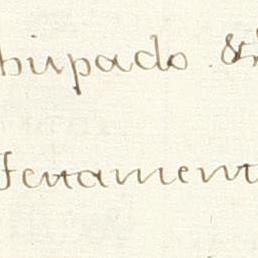 bispado &
fertament